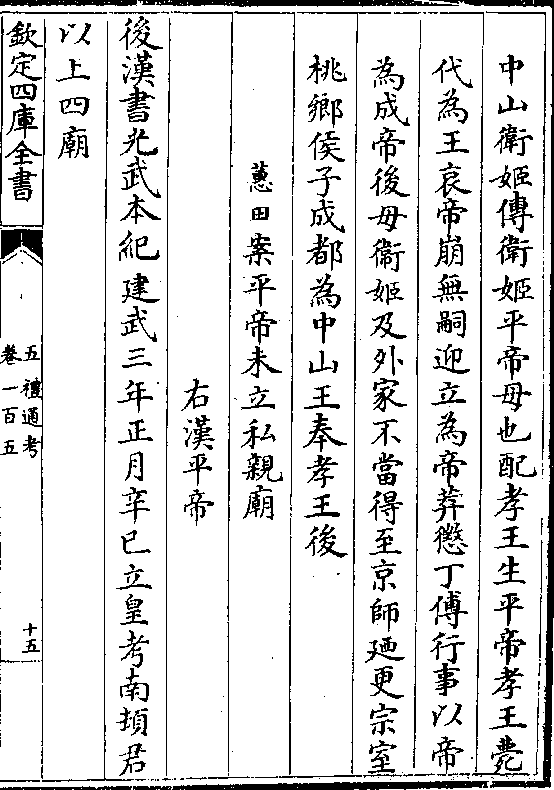 中山衛姬傳衛姬平帝母也配孝王生平帝孝王薨
代為王哀帝崩無嗣迎立為帝莽懲丁傅行事以帝
為成帝後母衞姬及外家不當得至京師廼更宗室
桃鄉侯子成都為中山王奉孝王後
蕙田案平帝未立私親廟
右漢平帝
後漢書光武本紀建武三年正月辛巳立皇考南頓君
以上四廟
欽定四庫全書
五禮通考
卷一百五
十五